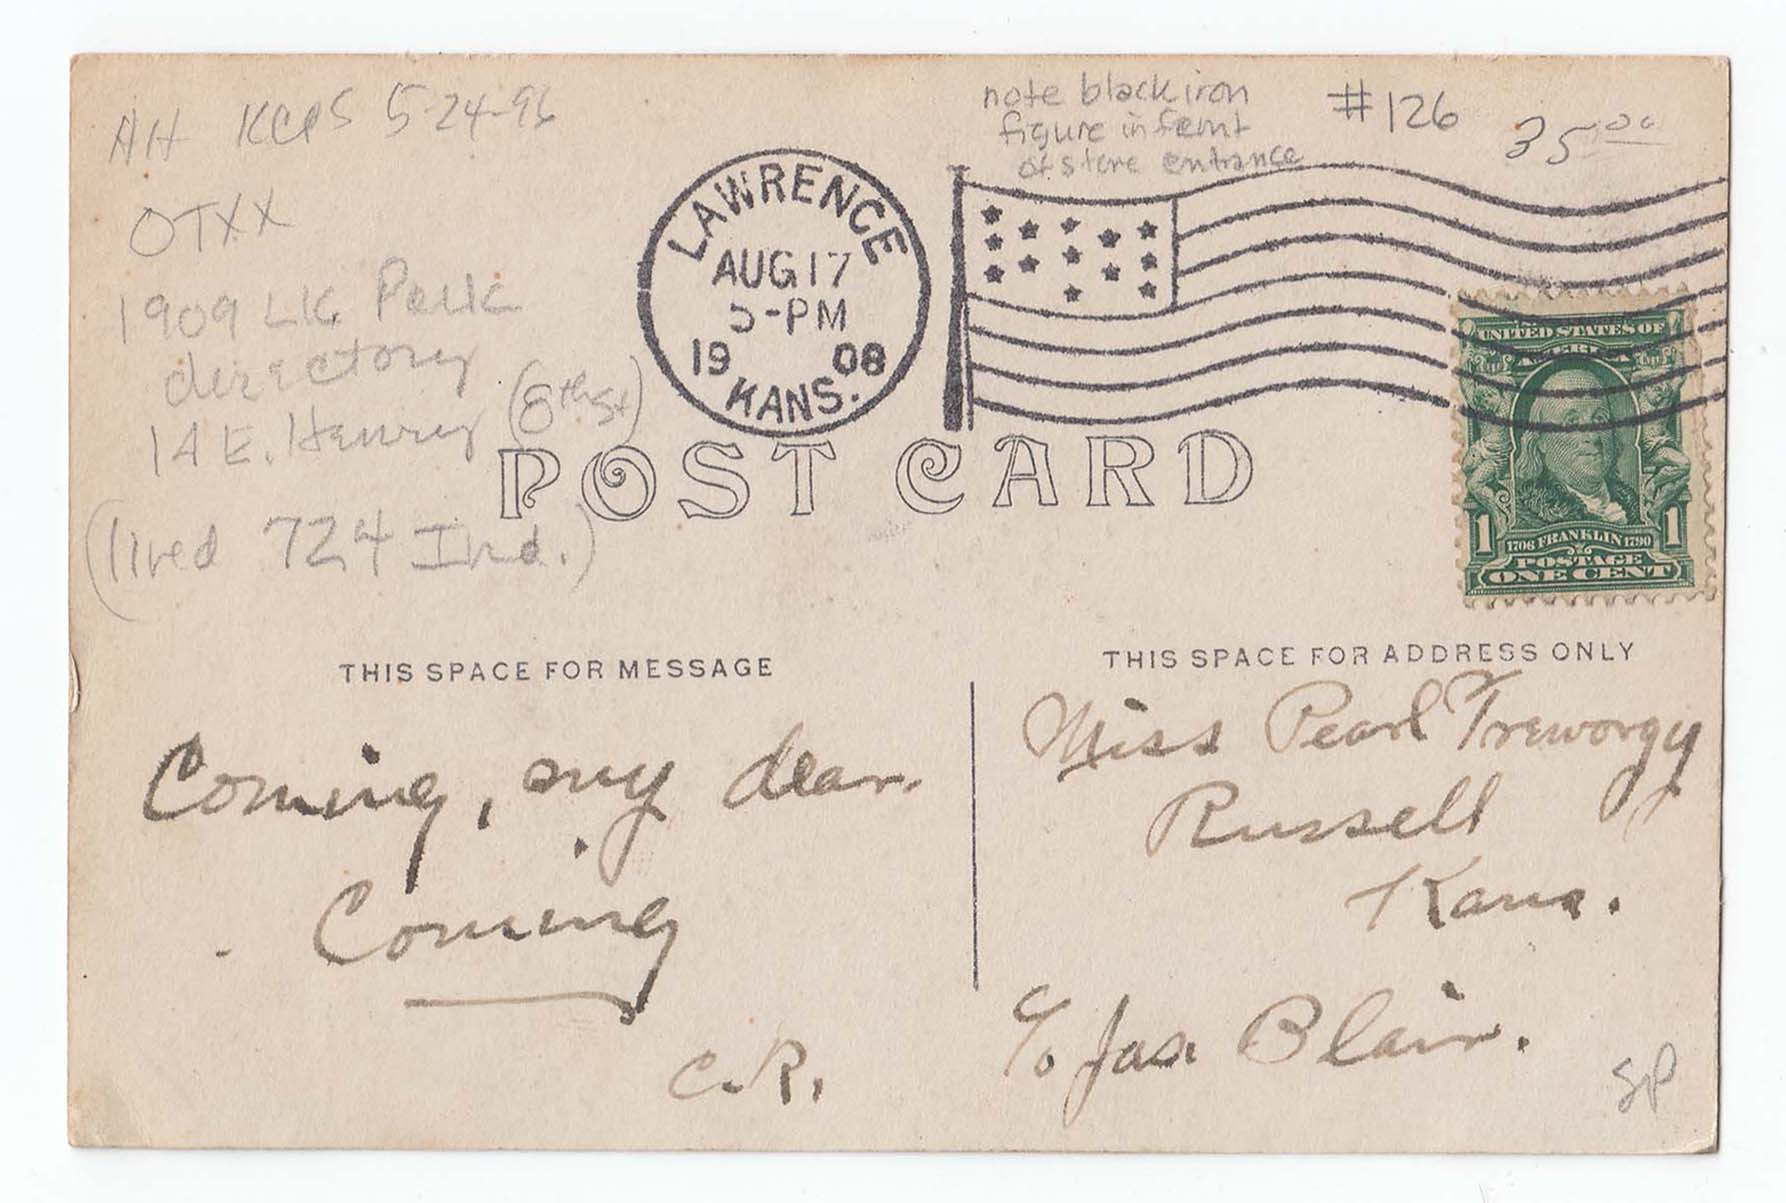 AH KCPS 5-24-96
OTXX
1909 LK
directory
14 E. Henry (8th St)
(lived 724 Ind.)
note black iron
figure in front
of store entrance
#126
35.00
LAWRENCE
AUG 17
5-PM
1908
KANS.
UNITED STATES OF
AMERICA
1 1706 FRANKLIN 1790 1
POSTAGE
ONE CENT
POST CARD
THIS SPACE FOR MESSAGE
Coming, my dear.
Coming
C.R.
THIS SPACE FOR ADDRESS ONLY
Miss Pearl Treworgy
Russell
Kans.
c/o Jas. Blair.